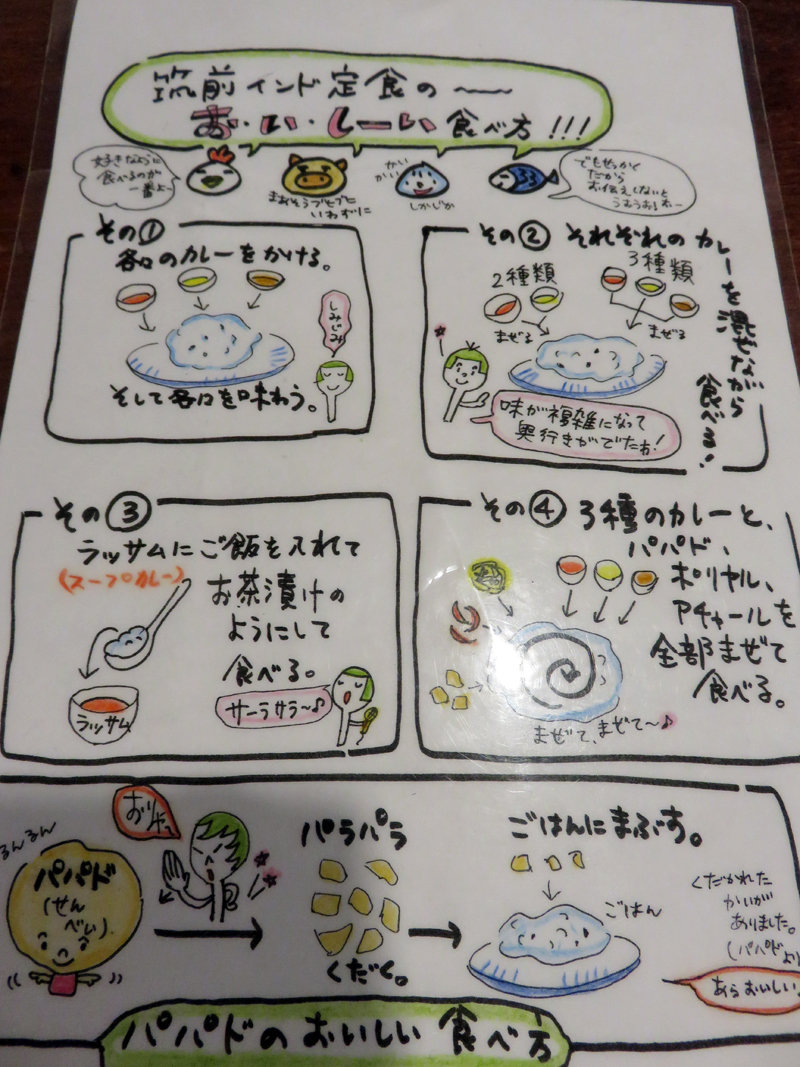 筑前インド定食の〜
お・い・しーい食べ方!!!
好きなように
食べるのが
一番よー
まあそうブヒブヒ
いわずに
かいかい
しかじか
でもせっかく
だから
お伝えしないと
その①
各々のカレーをかける。
しみじみ
そして各々を味わう。
その② それぞれのカレーを混ぜながら食べる!
2種類
まぜる
3種類
まぜる
味が複雑になって
奥行きがでたわ!
その③
ラッサムにご飯を入れて
(スープカレー)
お茶漬けの
ようにして
食べる。
ラッサム
サーラサラ〜♪
その④ 3種のカレーと、
パパド、
ポリヤル、
アチャールを
全部まぜて
食べる。
まぜて、まぜて〜♪
るんるん
パパド
(せんべい)
おりゃっ
パラパラ
くだく。
ごはんにまぶす。
ごはん
くだかれた
かいが
ありました。
(パパドより
あらおいしい
パパドのおいしい食べ方